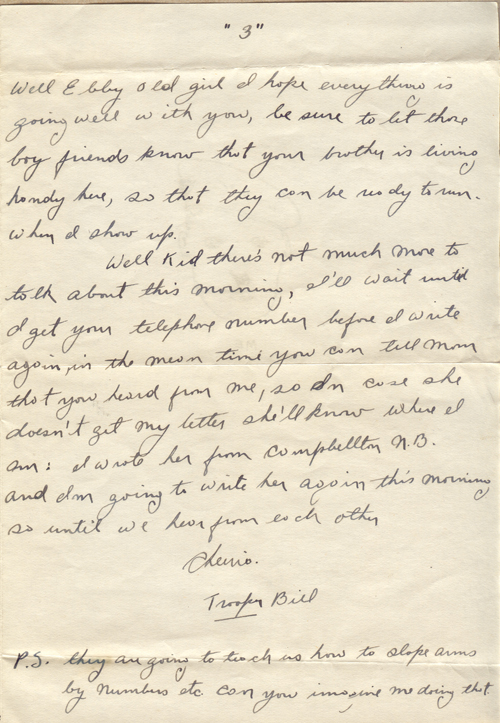 "3"
Well Ebby old girl I hope everything is
going well with you, be sure to let those
boy friends know that your brother is living
handy here, so that they can be ready to run.
when I show up.
Well Kid there's not much more to
talk about this morning, I'll wait until
I get your telephone number before I write
again, in the mean time you can tell mom
that you heard from me, so In case she
doesn't get my letter she'll know where I
am: I wrote her from Campbellton N.B.
and I'm going to write her again this morning
so until we hear from each other
Cheerio.
Trooper Bill
P.S. they are going to teach us how to slope arms
by numbers etc can you imagine me doing that